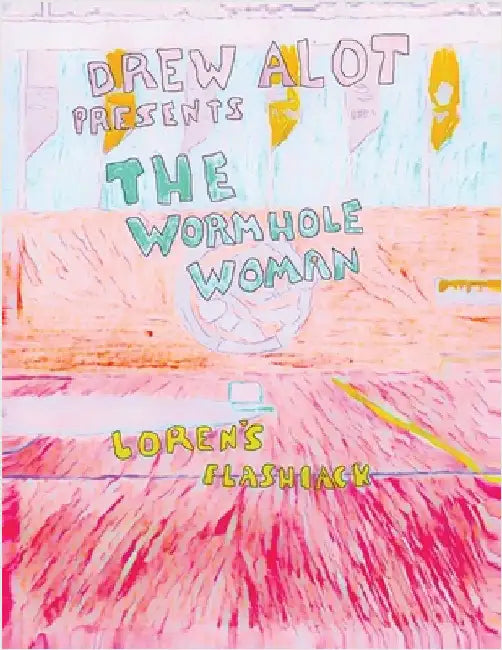 DREW ALOT
PRESENTS
THE
WORMHOLE
WOMAN
LOREN'S
FLASHIACK